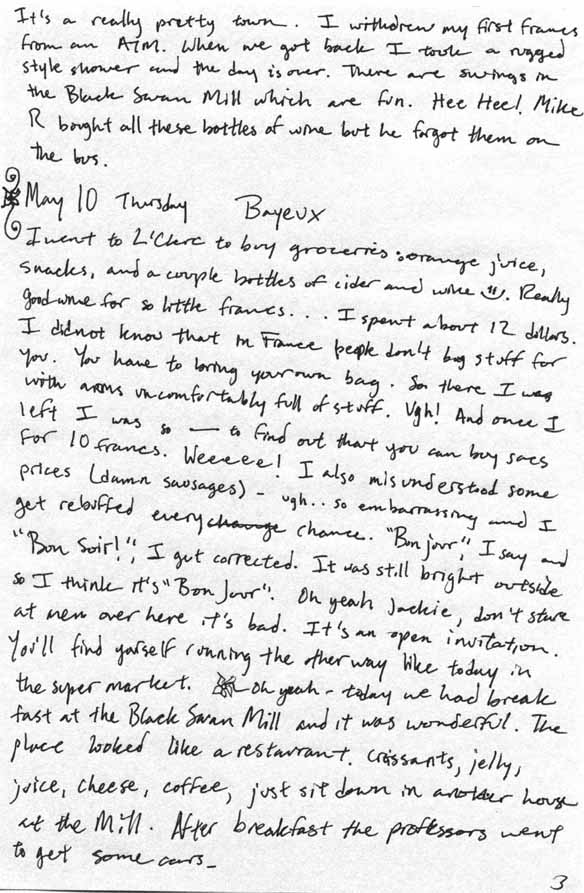 It's a really pretty town. I withdrew my first francs
from an ATM. When we got back I took a rugged
style shower and the day is over. There are swings in
the Black Swan Mill which are fun. Hee Hee! Mike
R bought all these bottles of wine but he forgot them on
the bus.
May 10 Thursday Bayeux
I went to L'Clerc to buy groceries: orange juice,
snacks, and a couple bottles of cider and wine. Really
good wine for so little francs... I spent about 12 dollars.
I didnot know that in France people don't bag stuff for
you. You have to bring your own bag. So there I was
with arms uncomfortably full of stuff. Ugh! And once I
left I was so — to find out that you can buy sacs
for 10 francs. Weeeee! I also misunderstood some
prices (damn sausages) - ugh.. so embarrassing and I
get rebuffed every change chance. "Bonjour", I say and
"Bon Soir!", I get corrected. It was still bright outside
so I think it's "Bon Jour". Oh yeah Jackie, don't stare
at men over here it's bad. It's an open invitation.
You'll find yourself running the other way like today in
the super market. Oh yeah - today we had break
fast at the Black Swan Mill and it was wonderful. The
place looked like a restaurant. Croissants, jelly,
juice, cheese, coffee, just sit down in another house
at the Mill. After breakfast the professors went
to get some cars-
3